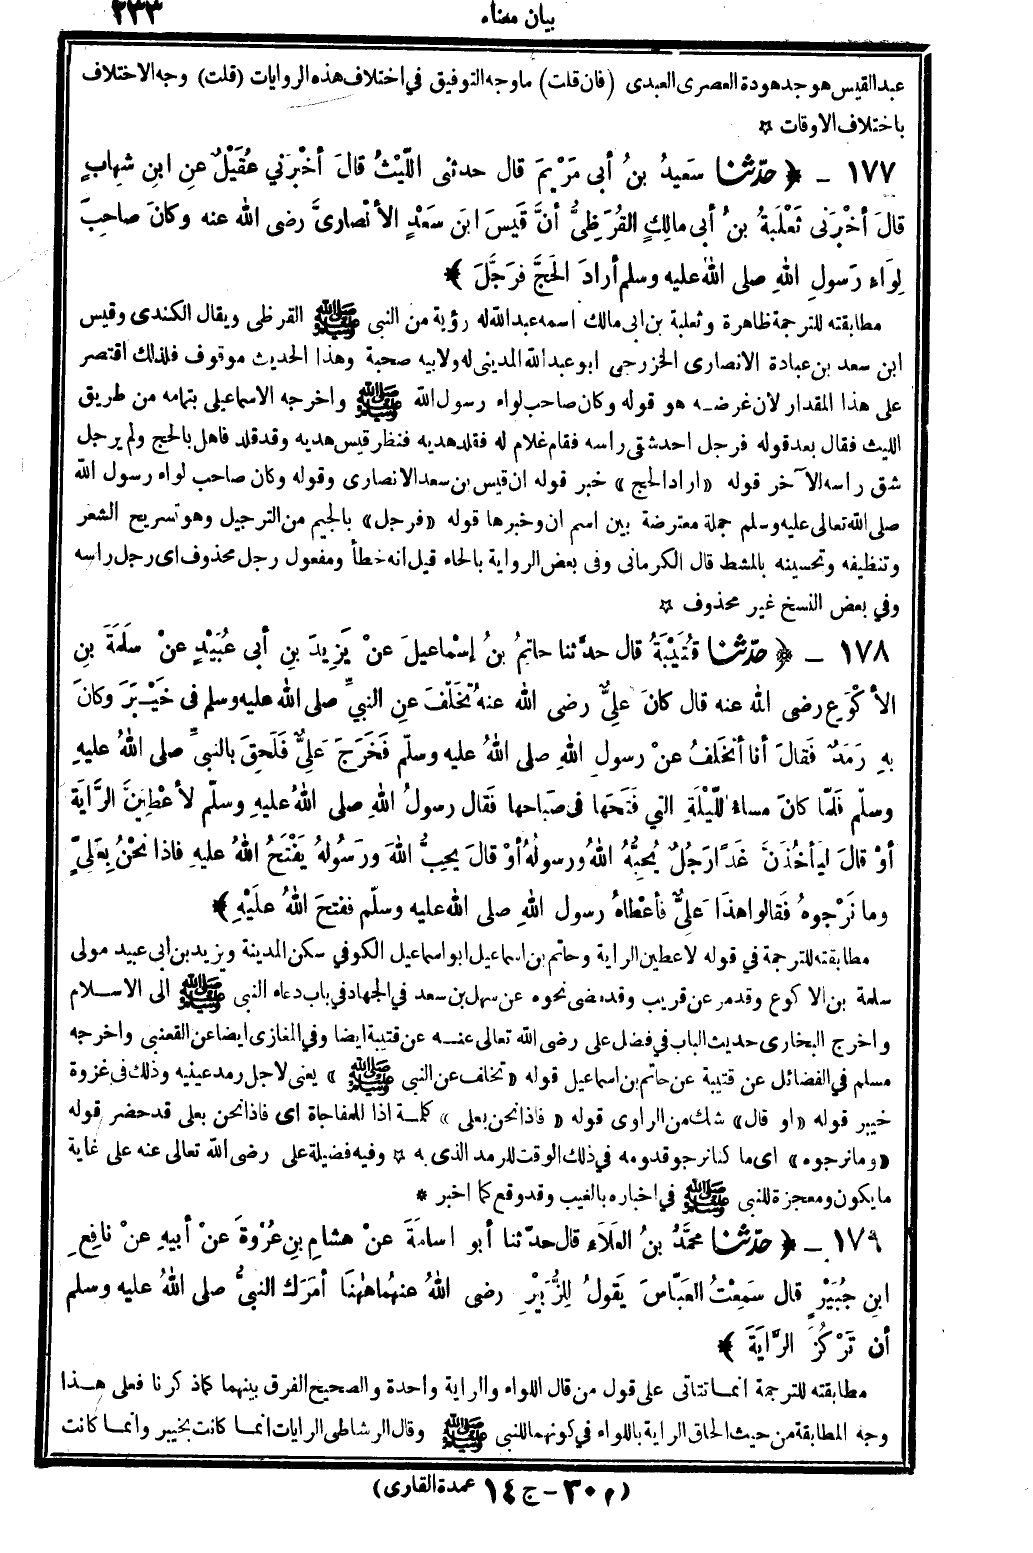 بيان معناه
٢٣٣
عبد القيس هو جد هودة العصرى العبدى (فان قلت) ما وجه التوفيق في اختلاف هذه الروايات (قلت) وجه الاختلاف
باختلاف الاوقات ☆
١٧٧ ـ ﴿ حدّثنا سَعيدُ بنُ أبى مَرْيمَ قال حدثنى اللَّيْثُ قالَ أخْبرَني عُقَيْلٌ عنِ ابنِ شهابٍ
قالَ أخْبرَنى ثَعْلَبةُ بنُ أبى مالكٍ القُرَظِىُّ أنَّ قَيسَ ابنَ سَعْدٍ الأنْصارىَّ رضى الله عنه وكانَ صاحِبَ
لِوَاءِ رَسولِ اللهِ صلى اللهُ عليه وسلم أرادَ الحَجَّ فرَجَّلَ ﴾
مطابقته للترجمة ظاهرة وثعلبة بن ابى مالك اسمه عبد الله له رؤية من النبى ﷺ القرظى ويقال الكندى وقيس
ابن سعد بن عبادة الانصارى الخزرجى ابو عبد الله المدينى له ولابيه صحبة وهذا الحديث موقوف فلذلك اقتصر
على هذا المقدار لان غرضه هو قوله وكان صاحب لواء رسول الله ﷺ واخرجه الاسماعيلى بتمامه من طريق
الليث فقال بعد قوله فرجل احد شقى راسه فقام غلام له فقلد هديه فنظر قيس هديه وقد قلد فاهل بالحج ولم يرجل
شق راسه الآخر قوله «اراد الحج» خبر قوله ان قيس بن سعد الانصارى وقوله وكان صاحب لواء رسول الله
صلى الله تعالى عليه وسلم جملة معترضة بين اسم ان وخبرها قوله «فرجل» بالجيم من الترجيل وهو تسريح الشعر
وتنظيفه وتحسينه بالمشط قال الكرمانى وفى بعض الرواية بالحاء قيل انه خطأ ومفعول رجل محذوف اى رجل راسه
وفي بعض النسخ غير محذوف ☆
١٧٨ ـ ﴿ حدّثنا قُتَيْبَةُ قال حدَّثنا حاتِمُ بنُ إسْماعيلَ عنْ يَزِيدَ بنِ أبى عُبَيْدٍ عنْ سَلَمَةَ بنِ
الأكْوَعِ رضى الله عنه قال كانَ عليٌّ رضى الله عنهُ تخَلَّفَ عنِ النبيِّ صلى الله عليه وسلم فى خَيْبَرَ وكانَ
بهِ رَمَدٌ فَقالَ أنا أتخَلفُ عنْ رسولِ اللهِ صلى اللهُ عليه وسلّم فَخَرَجَ عَلِيٌّ فَلَحِقَ بالنبىِّ صلى اللهُ عليهِ
وسلّم فَلمّا كانَ مساءُ اللّيْلَةِ التي فتَحَها فى صَباحها فقال رسولُ اللهِ صلى اللهُ عليهِ وسلّم لأعْطِيَنَّ الرَّايةَ
أوْ قالَ ليأخُذَنَّ غَدًا رَجلٌ يُحبُّهُ اللهُ ورسولُهُ أوْ قالَ يحِبُّ اللهَ ورَسُولهُ يَفْتَحُ اللهُ عليهِ فاذا نحْنُ بِعَلِيٍّ
وما نَرْجوهُ فَقالوا هذَا عَلىٌّ فأعْطاهُ رسول اللهِ صلى اللهُ عليه وسلّم ففتحَ اللهُ علَيْهِ ﴾
مطابقته للترجمة في قوله لاعطين الراية وحاتم بن اسماعيل ابو اسماعيل الكوفي سكن المدينة ويزيد بن ابى عبيد مولى
سلمة بن الاكوع وقد مر عن قريب وقد مضى نحوه عن سهل بن سعد في الجهاد في باب دعاء النبى ﷺ الى الاسلام
واخرج البخارى حديث الباب في فضل على رضى الله تعالى عنه عن قتيبة ايضا وفي المغازى ايضا عن القعنبى واخرجه
مسلم في الفضائل عن قتيبة عن حاتم بن اسماعيل قوله «تخلف عن النبى ﷺ» يعنى لاجل رمد عينيه وذلك فى غزوة
خيبر قوله «او قال» شك من الراوى قوله «فاذا نحن بعلى» كلمة اذا للمفاجاة اى فاذا نحن بعلى قد حضر قوله
«وما نرجوه» اى ما كنا نرجو قدومه في ذلك الوقت للرمد الذى به ☆ وفيه فضيلة على رضى الله تعالى عنه على غاية
ما يكون ومعجزة للنبى ﷺ في اخباره بالغيب وقد وقع كما اخبر *
١٧٩ ـ ﴿ حدّثنا محمَّدُ بنُ العَلاَءِ قال حدّثنا أبو اسامَةَ عنْ هشامِ بنِ عُرْوةَ عنْ أبيهِ عنْ نافِعِ
ابنِ جُبَيْرٍ قال سَمِعْتُ العَبَّاسَ يَقولُ لِلزُّبَيْرِ رضى اللهُ عنهُما هاهُنا أمَرَكَ النبىُّ صلى اللهُ عليه وسلم
أن تَرْكُزَ الرَّايَةَ ﴾
مطابقته للترجمة انما تتاتى على قول من قال اللواء والراية واحدة والصحيح الفرق بينهما كما ذكرنا فعلى هذا
وجه المطابقة من حيث الحاق الراية باللواء في كونهما للنبى ﷺ وقال الرشاطى الرايات انما كانت بخيبر وانما كانت
(م ٣٠ - ج ١٤ عمدة القارى)